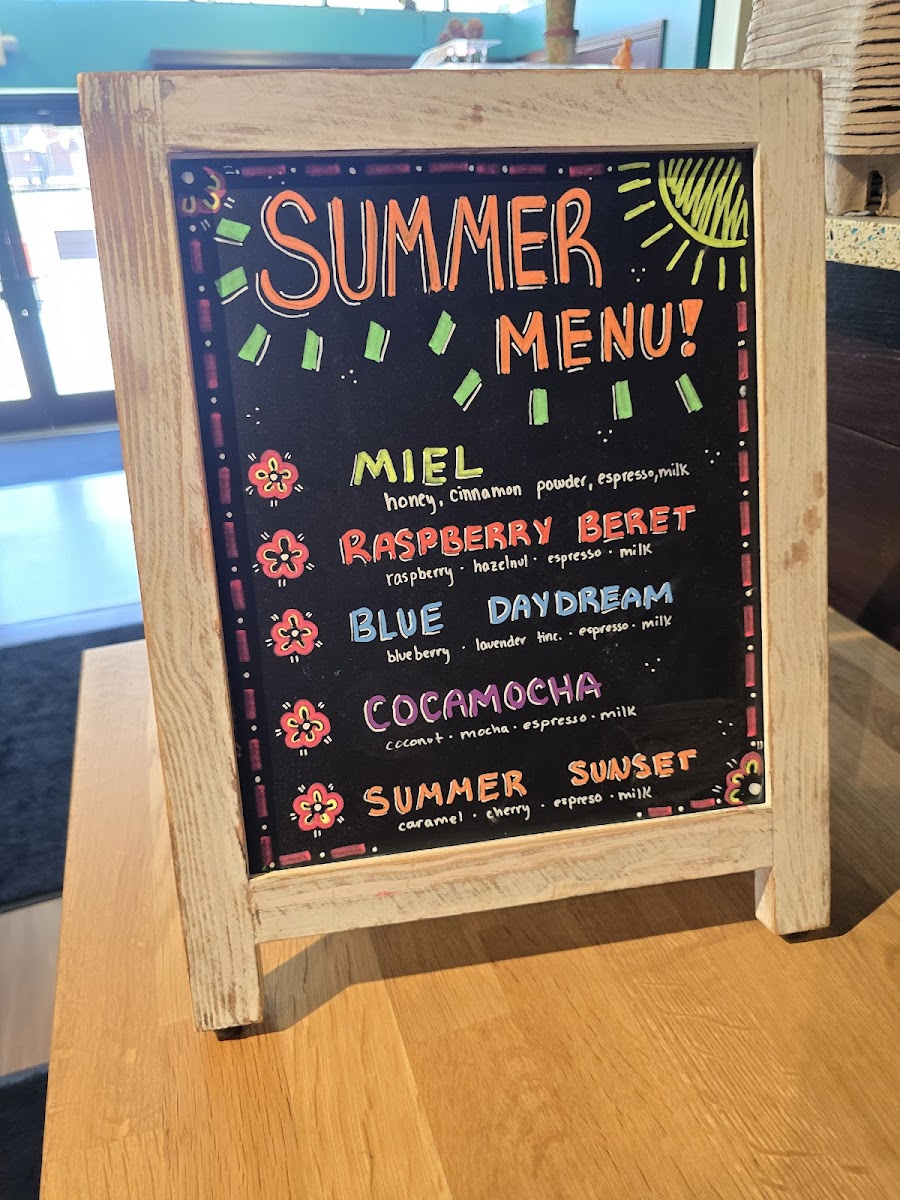 SUMMER
MENU!
MIEL
honey, cinnamon powder, espresso, milk
RASPBERRY BERET
raspberry · hazelnut · espresso · milk
BLUE DAYDREAM
blueberry · lavender tinc. · espresso · milk
COCAMOCHA
coconut · mocha · espresso · milk
SUMMER SUNSET
caramel · cherry · espreso · milk